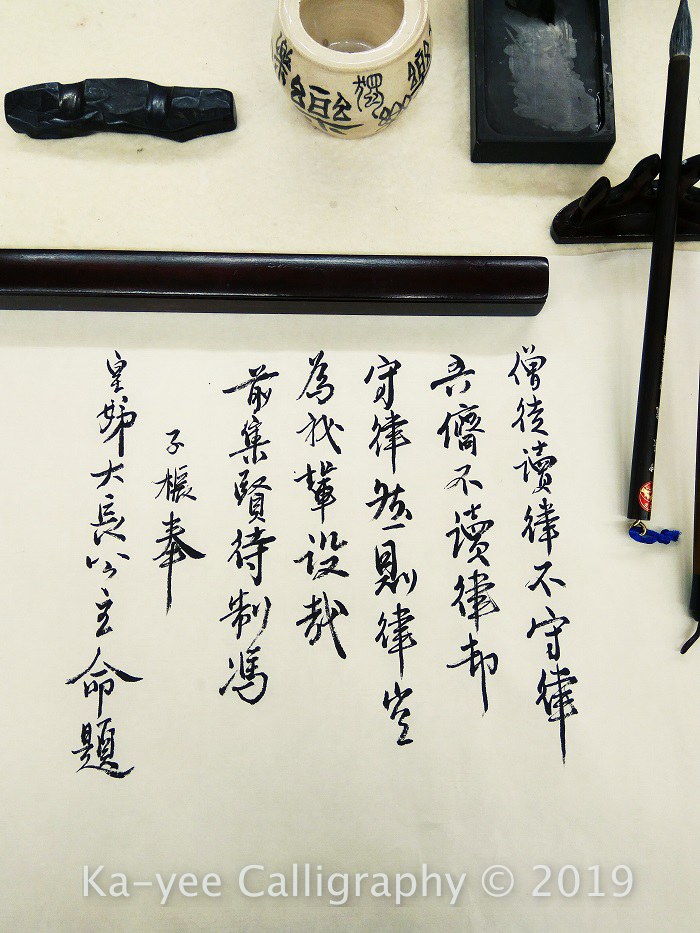 僧徒讀律不守律
吾儕不讀律却
守律然則律豈
為我輩設哉
前集賢待制馮
子振奉
皇姊大長公主命題
Ka-yee Calligraphy © 2019